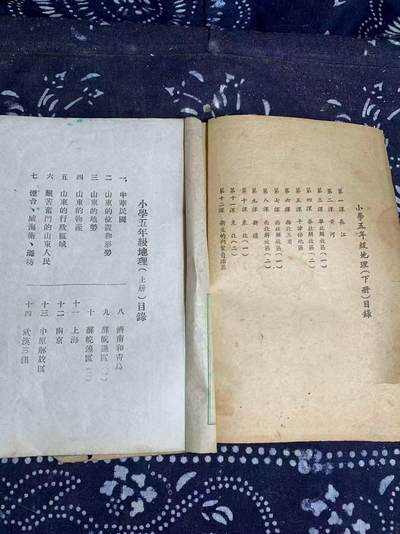 小學五年級地理(上册)目錄
一、中華民國
二 山東的位置和形勢
三 山東的地勢
四 山東的物產
五 山東的行政區域
六 艱苦奮鬥的山東人民
七 煙台、威海衛、濰坊
八 濟南和青島
九 蘇皖邊區(一)
十 蘇皖邊區(二)
十一 上海
十二 南京
十三 中原解放區
十四 武漢三鎮
小學五年級地理(下册)目錄
第一課 長江
第二課 黄河
第三課 解放區(一)
第四課 解放區(二)
第五課 平津
第六課
第七課 解放區(一)
第八課 解放區(二)
第九課 新疆
第十課 東北(一)
第十一課 東北(二)
第十二課 新生的内蒙自治區